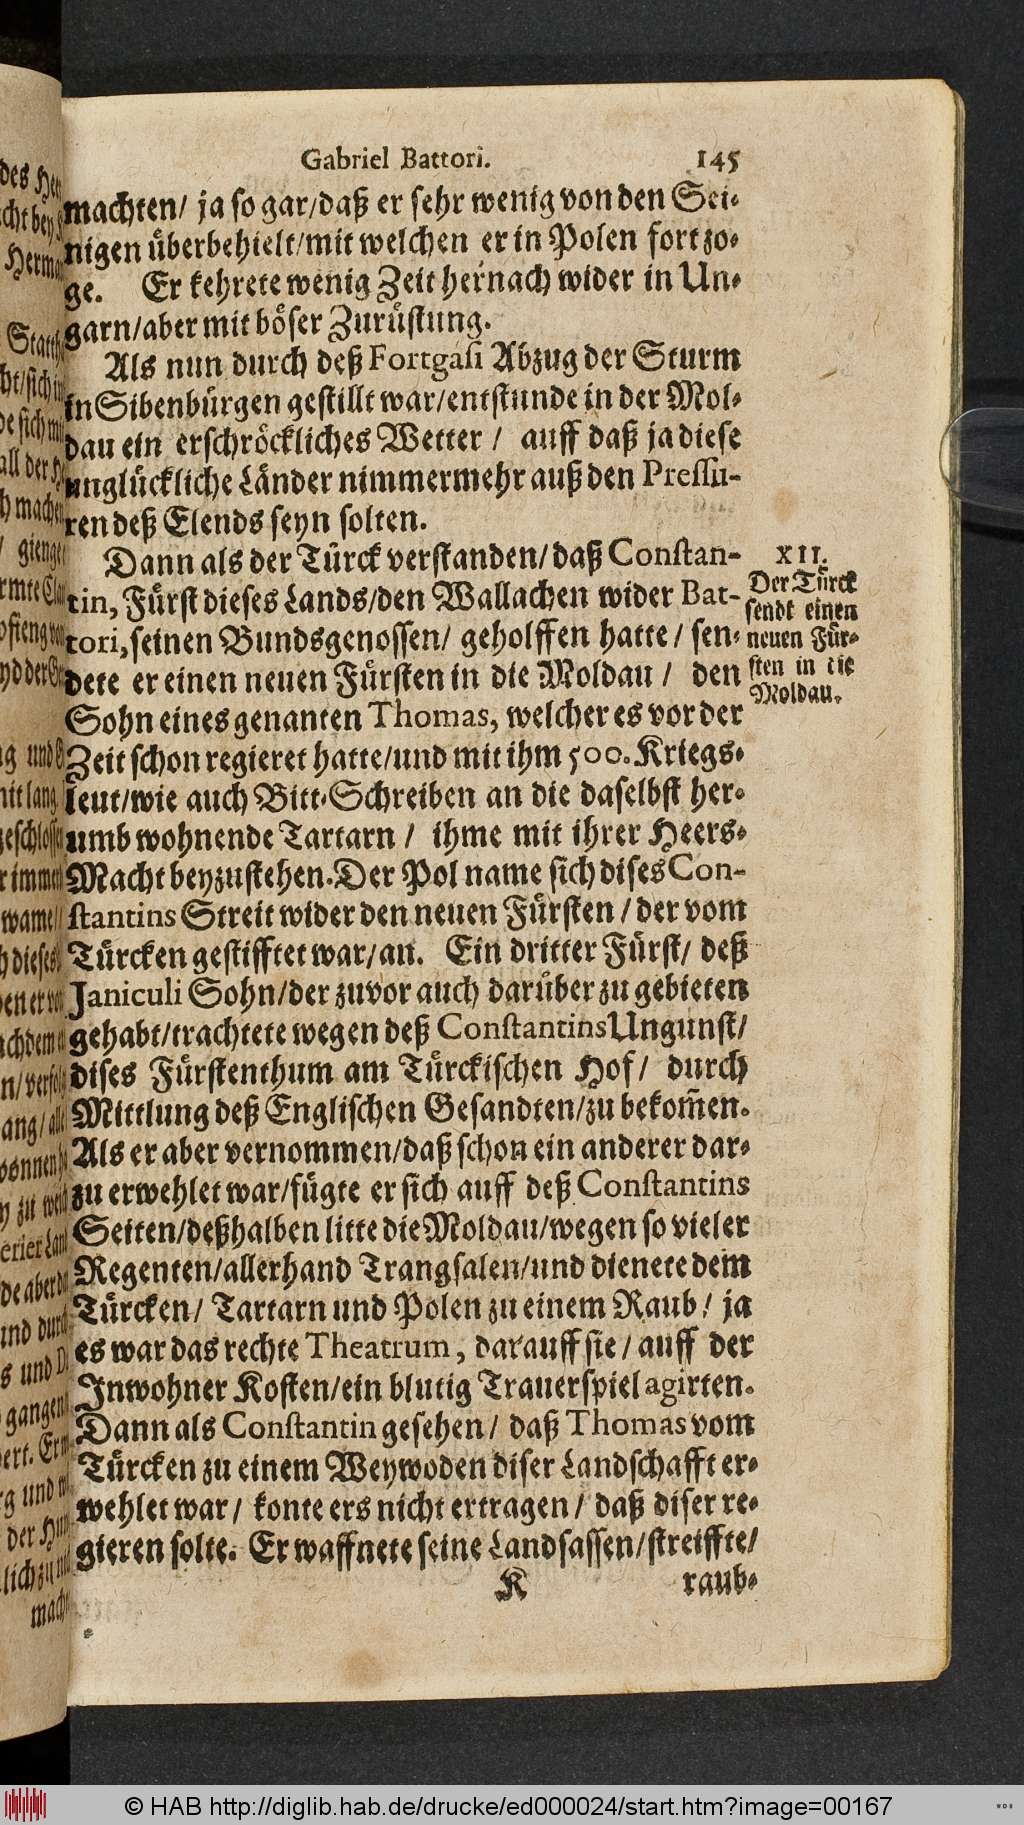 Gabriel Battori. 145
machten/ ja so gar/daß er sehr wenig von den Sei-
nigen überbehielt/mit welchen er in Polen fortzo-
ge. Er kehrete wenig Zeit hernach wider in Un-
garn/aber mit böser Zurüstung.
Als nun durch deß Fortgasi Abzug der Sturm
in Sibenbürgen gestillt war/entstunde in der Mol-
dau ein erschröckliches Wetter / auff daß ja diese
unglückliche Länder nimmermehr auß den Pressu-
ren deß Elends seyn solten.
Dann als der Türck verstanden/daß Constan-
tin, Fürst dieses Lands/den Wallachen wider Bat-
tori, seinen Bundsgenossen/ geholffen hatte/ sen-
dete er einen neuen Fürsten in die Moldau / den
Sohn eines genanten Thomas, welcher es vor der
Zeit schon regieret hatte/und mit ihm 500. Kriegs-
leut/wie auch Bitt-Schreiben an die daselbst her-
umb wohnende Tartarn / ihme mit ihrer Heers-
Macht beyzustehen. Der Pol name sich dises Con-
stantins Streit wider den neuen Fürsten / der vom
Türcken gestifftet war/an. Ein dritter Fürst/ deß
Janiculi Sohn/der zuvor auch darüber zu gebieten
gehabt/trachtete wegen deß Constantins Ungunst/
dises Fürstenthum am Türckischen Hof/ durch
Mittlung deß Englischen Gesandten/zu bekom̄en.
Als er aber vernommen/daß schon ein anderer dar-
zu erwehlet war/fügte er sich auff deß Constantins
Seiten/deßhalben litte die Moldau/wegen so vieler
Regenten/allerhand Trangsalen/und dienete dem
Türcken/ Tartarn und Polen zu einem Raub/ ja
es war das rechte Theatrum, darauff sie / auff der
Inwohner Kosten/ein blutig Trauerspiel agirten.
Dann als Constantin gesehen / daß Thomas vom
Türcken zu einem Weywoden diser Landschafft er-
wehlet war/ konte ers nicht ertragen / daß diser re-
gieren solte. Er waffnete seine Landsassen/streiffte/
K raub-
XII.
Der Türck
sendt einen
neuen Für-
sten in die
Moldau.
© HAB http://diglib.hab.de/drucke/ed000024/start.htm?image=00167